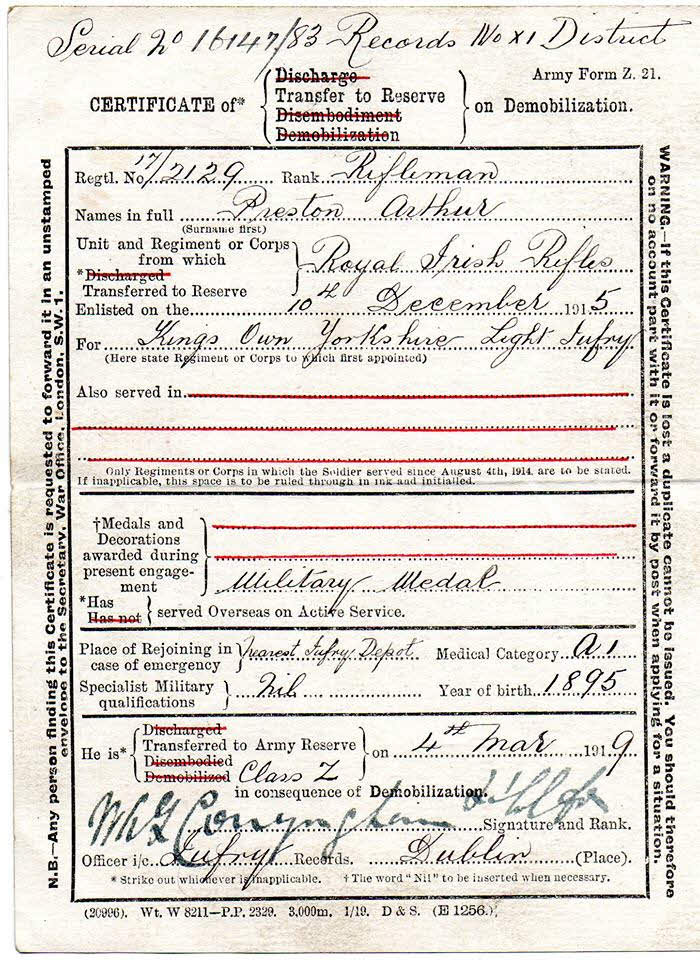 Serial No 16147/83 Records No XI District
Army Form Z. 21.
CERTIFICATE of*
Discharge
Transfer to Reserve
Disembodiment
Demobilization
on Demobilization.
Regtl. No. 17/2129 Rank Rifleman
Names in full Preston Arthur
(Surname first)
Unit and Regiment or Corps
from which
*Discharged
Transferred to Reserve
Royal Irish Rifles
Enlisted on the 10th December 1915
For Kings Own Yorkshire Light Infry
(Here state Regiment or Corps to which first appointed)
Also served in
Only Regiments or Corps in which the Soldier served since August 4th, 1914, are to be stated.
If inapplicable, this space is to be ruled through in ink and initialled.
†Medals and
Decorations
awarded during
present engage-
ment
Military Medal
*Has
Has not
served Overseas on Active Service.
Place of Rejoining in
case of emergency
nearest Infry Depot
Medical Category A1
Specialist Military
qualifications
Nil
Year of birth 1895
He is*
Discharged
Transferred to Army Reserve
Disembodied
Demobilized
Class Z
on 4th Mar 1919
in consequence of Demobilization.
Conyngham
Signature and Rank.
Officer i/c. Infry Records. Dublin (Place).
* Strike out whichever is inapplicable. † The word "Nil" to be inserted when necessary.
(20996). Wt. W 8211—P.P. 2329. 3,000m. 1/19. D & S. (E 1256.)
N.B.—Any person finding this Certificate is requested to forward it in an unstamped
envelope to the Secretary, War Office, London, S.W. 1.
WARNING.—If this Certificate is lost a duplicate cannot be issued. You should therefore
on no account part with it or forward it by post when applying for a situation.